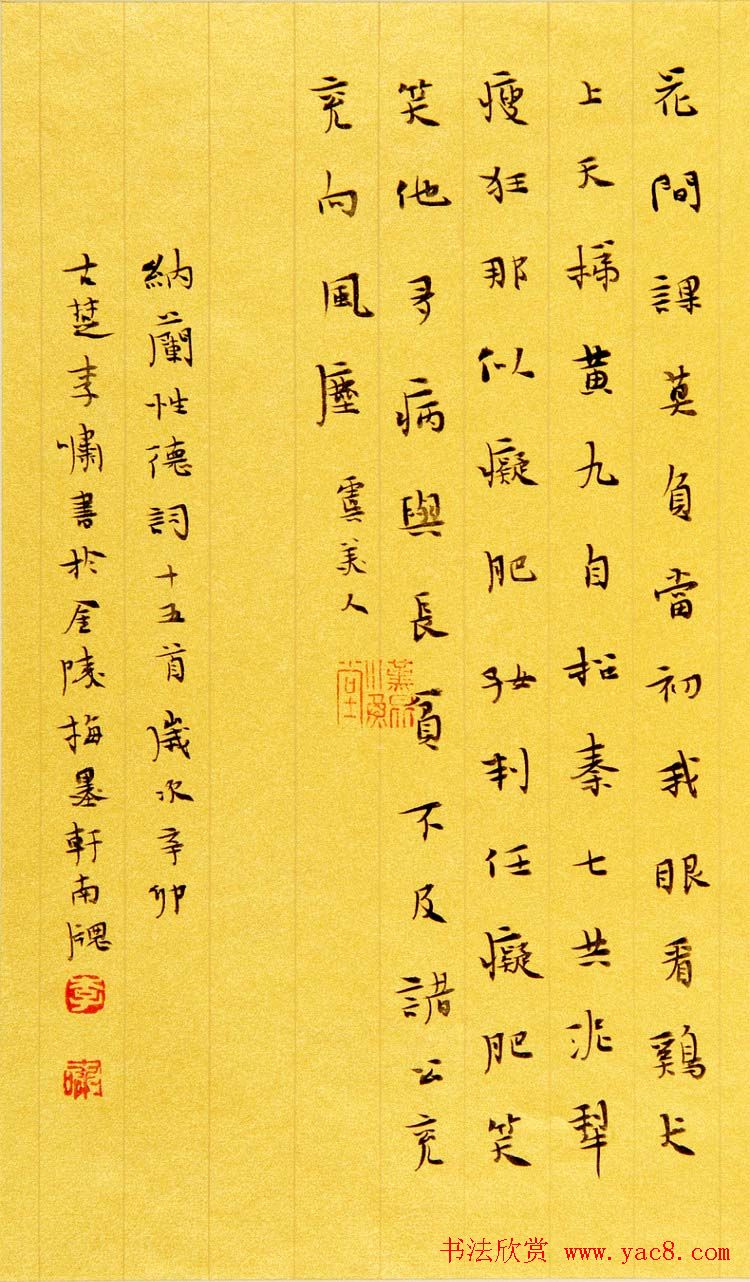 花間課莫負當初我眼看鷄犬
上天梯黃九自招秦七共泥犁
瘦狂那似癡肥好判任癡肥笑
笑他多病與長貧不及諸公衮
衮向風塵 虞美人
納蘭性德詞十五首歲次辛卯
古楚李嘯書於金陵梅墨軒南牕
李
嘯
书法欣赏 www.yac8.com